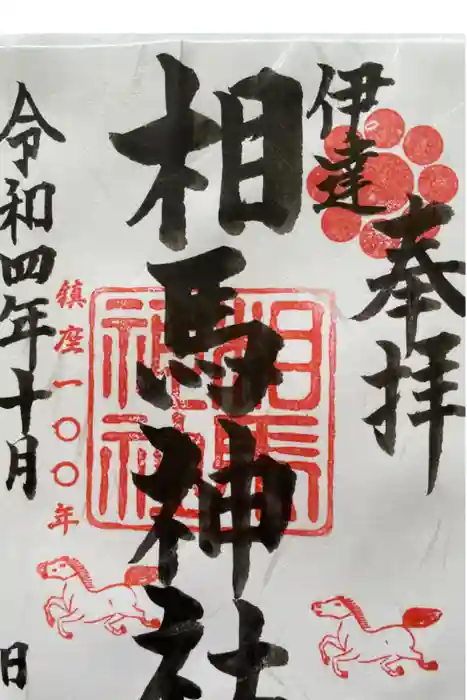 奉拝
伊達
相馬神社
相馬
神社
鎮座一〇〇年
令和四年十月
日